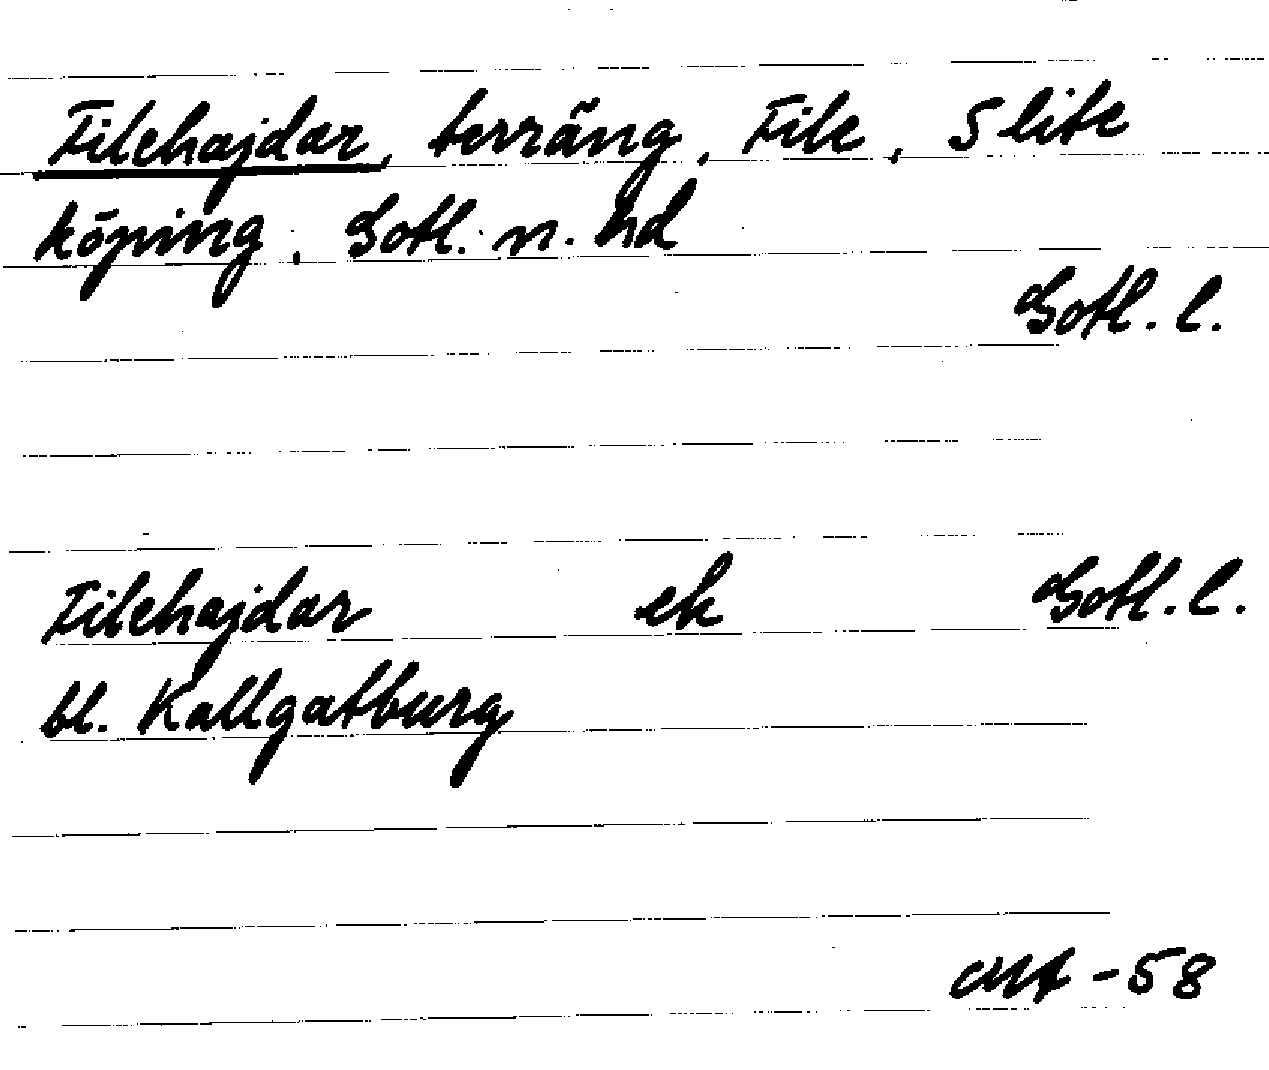 Filehajdar, terräng, File, Slite
köping, Gotl. n. hd
Gotl. l.
Filehajdar ek Gotl. l.
bl. Kallgatburg
-58